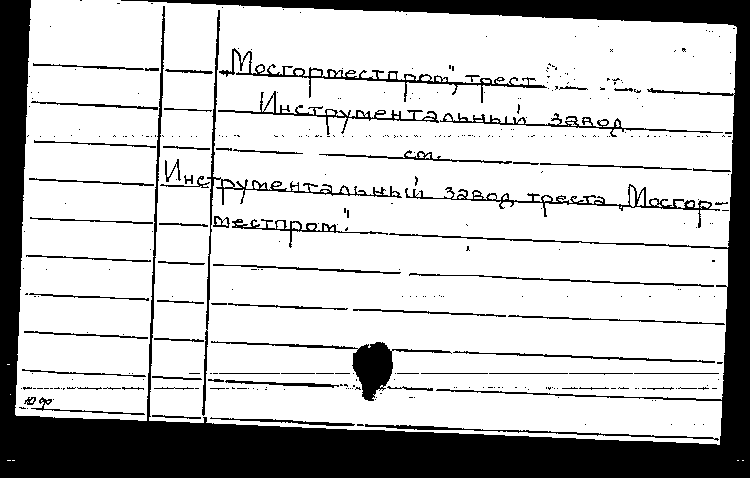 „Мосгорместпром", трест
Инструментальный завод
см.
Инструментальный завод треста „Мосгор-
местпром"